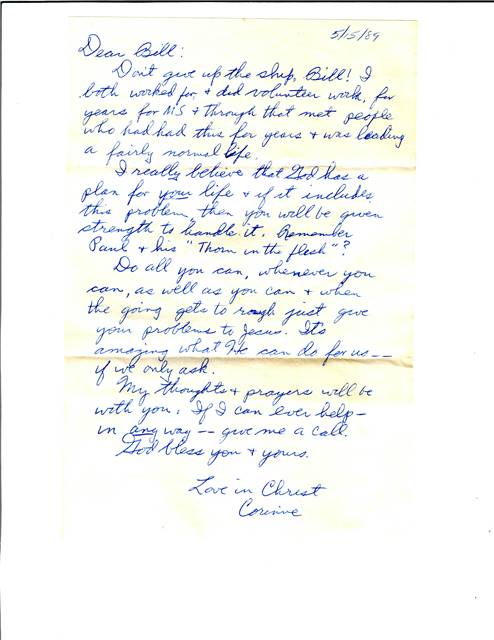 5/15/89
Dear Bill:
Don't give up the ship, Bill! I
both worked for, + did volunteer work, for
years for MS + through that met people
who had had this for years + was leading
a fairly normal life.
I really believe that God has a
plan for your life + if it includes
this problem, then you will be given
strength to handle it. Remember
Paul + his "Thorn in the flesh"?
Do all you can, whenever you
can, as well as you can + when
the going gets to rough just give
your problems to Jesus. It's
amazing what He can do for us--
if we only ask.
My thoughts + prayers will be
with you. If I can ever help-
in any way -- give me a call.
God bless you + yours.
Love in Christ
Corinne